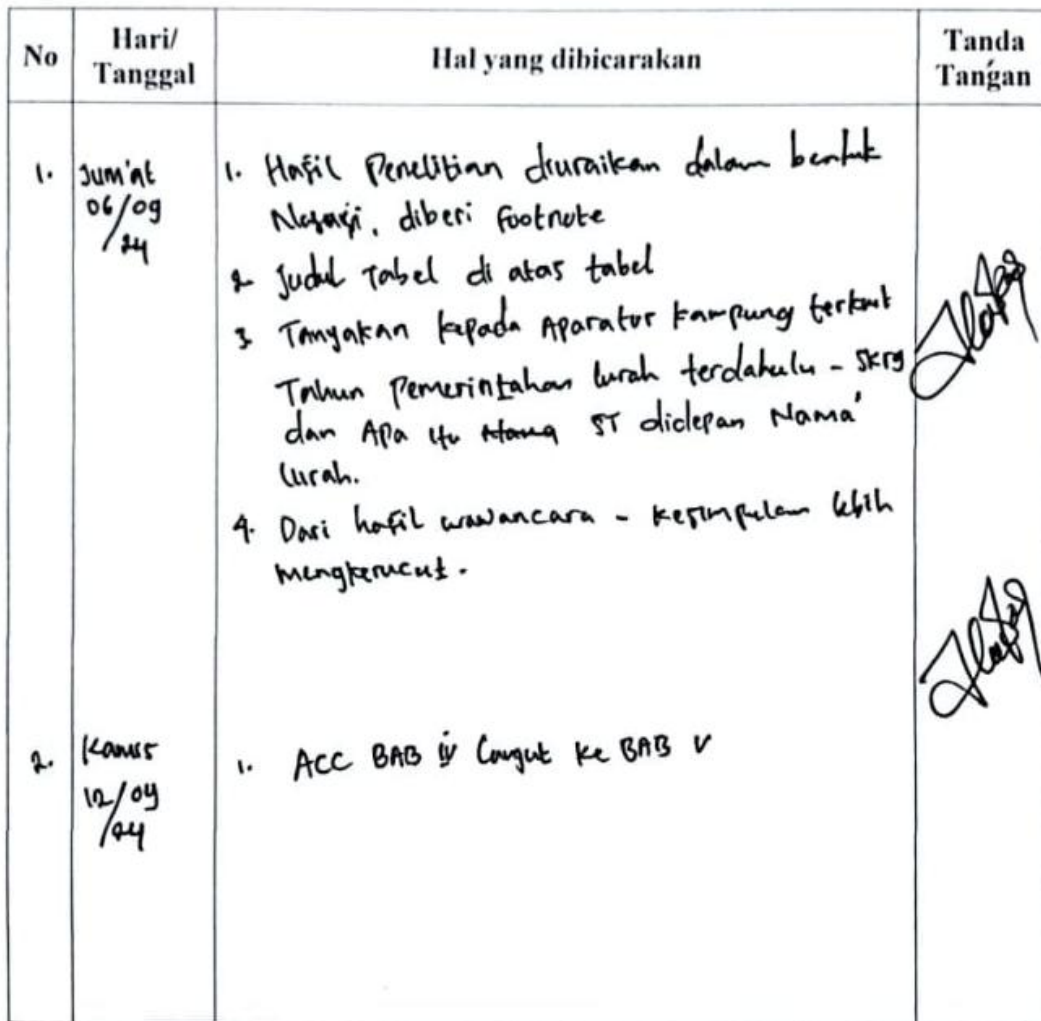 No
Hari/
Tanggal
Hal yang dibicarakan
Tanda
Tangan
1.
Jum'at
06/09
/24
1. Hasil Penelitian diuraikan dalam bentuk
Narasi, diberi footnote
2 Judul Tabel di atas tabel
3 Tanyakan kepada Aparatur kampung terkait
Tahun Pemerintahan lurah terdahulu - skrg
dan Apa itu ST didepan Nama'
lurah.
4. Dari hasil wawancara - kesimpulan lebih
mengkerucut.
2.
Kamis
12/09
/24
1. ACC BAB IV Lanjut ke BAB V